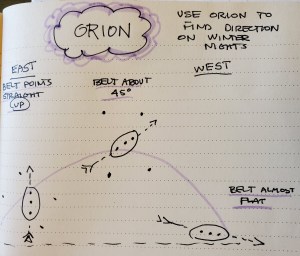 ORION
USE ORION TO
FIND DIRECTION
ON WINTER
NIGHTS
EAST
BELT POINTS
STRAIGHT
UP
BELT ABOUT
45°
WEST
BELT ALMOST
FLAT